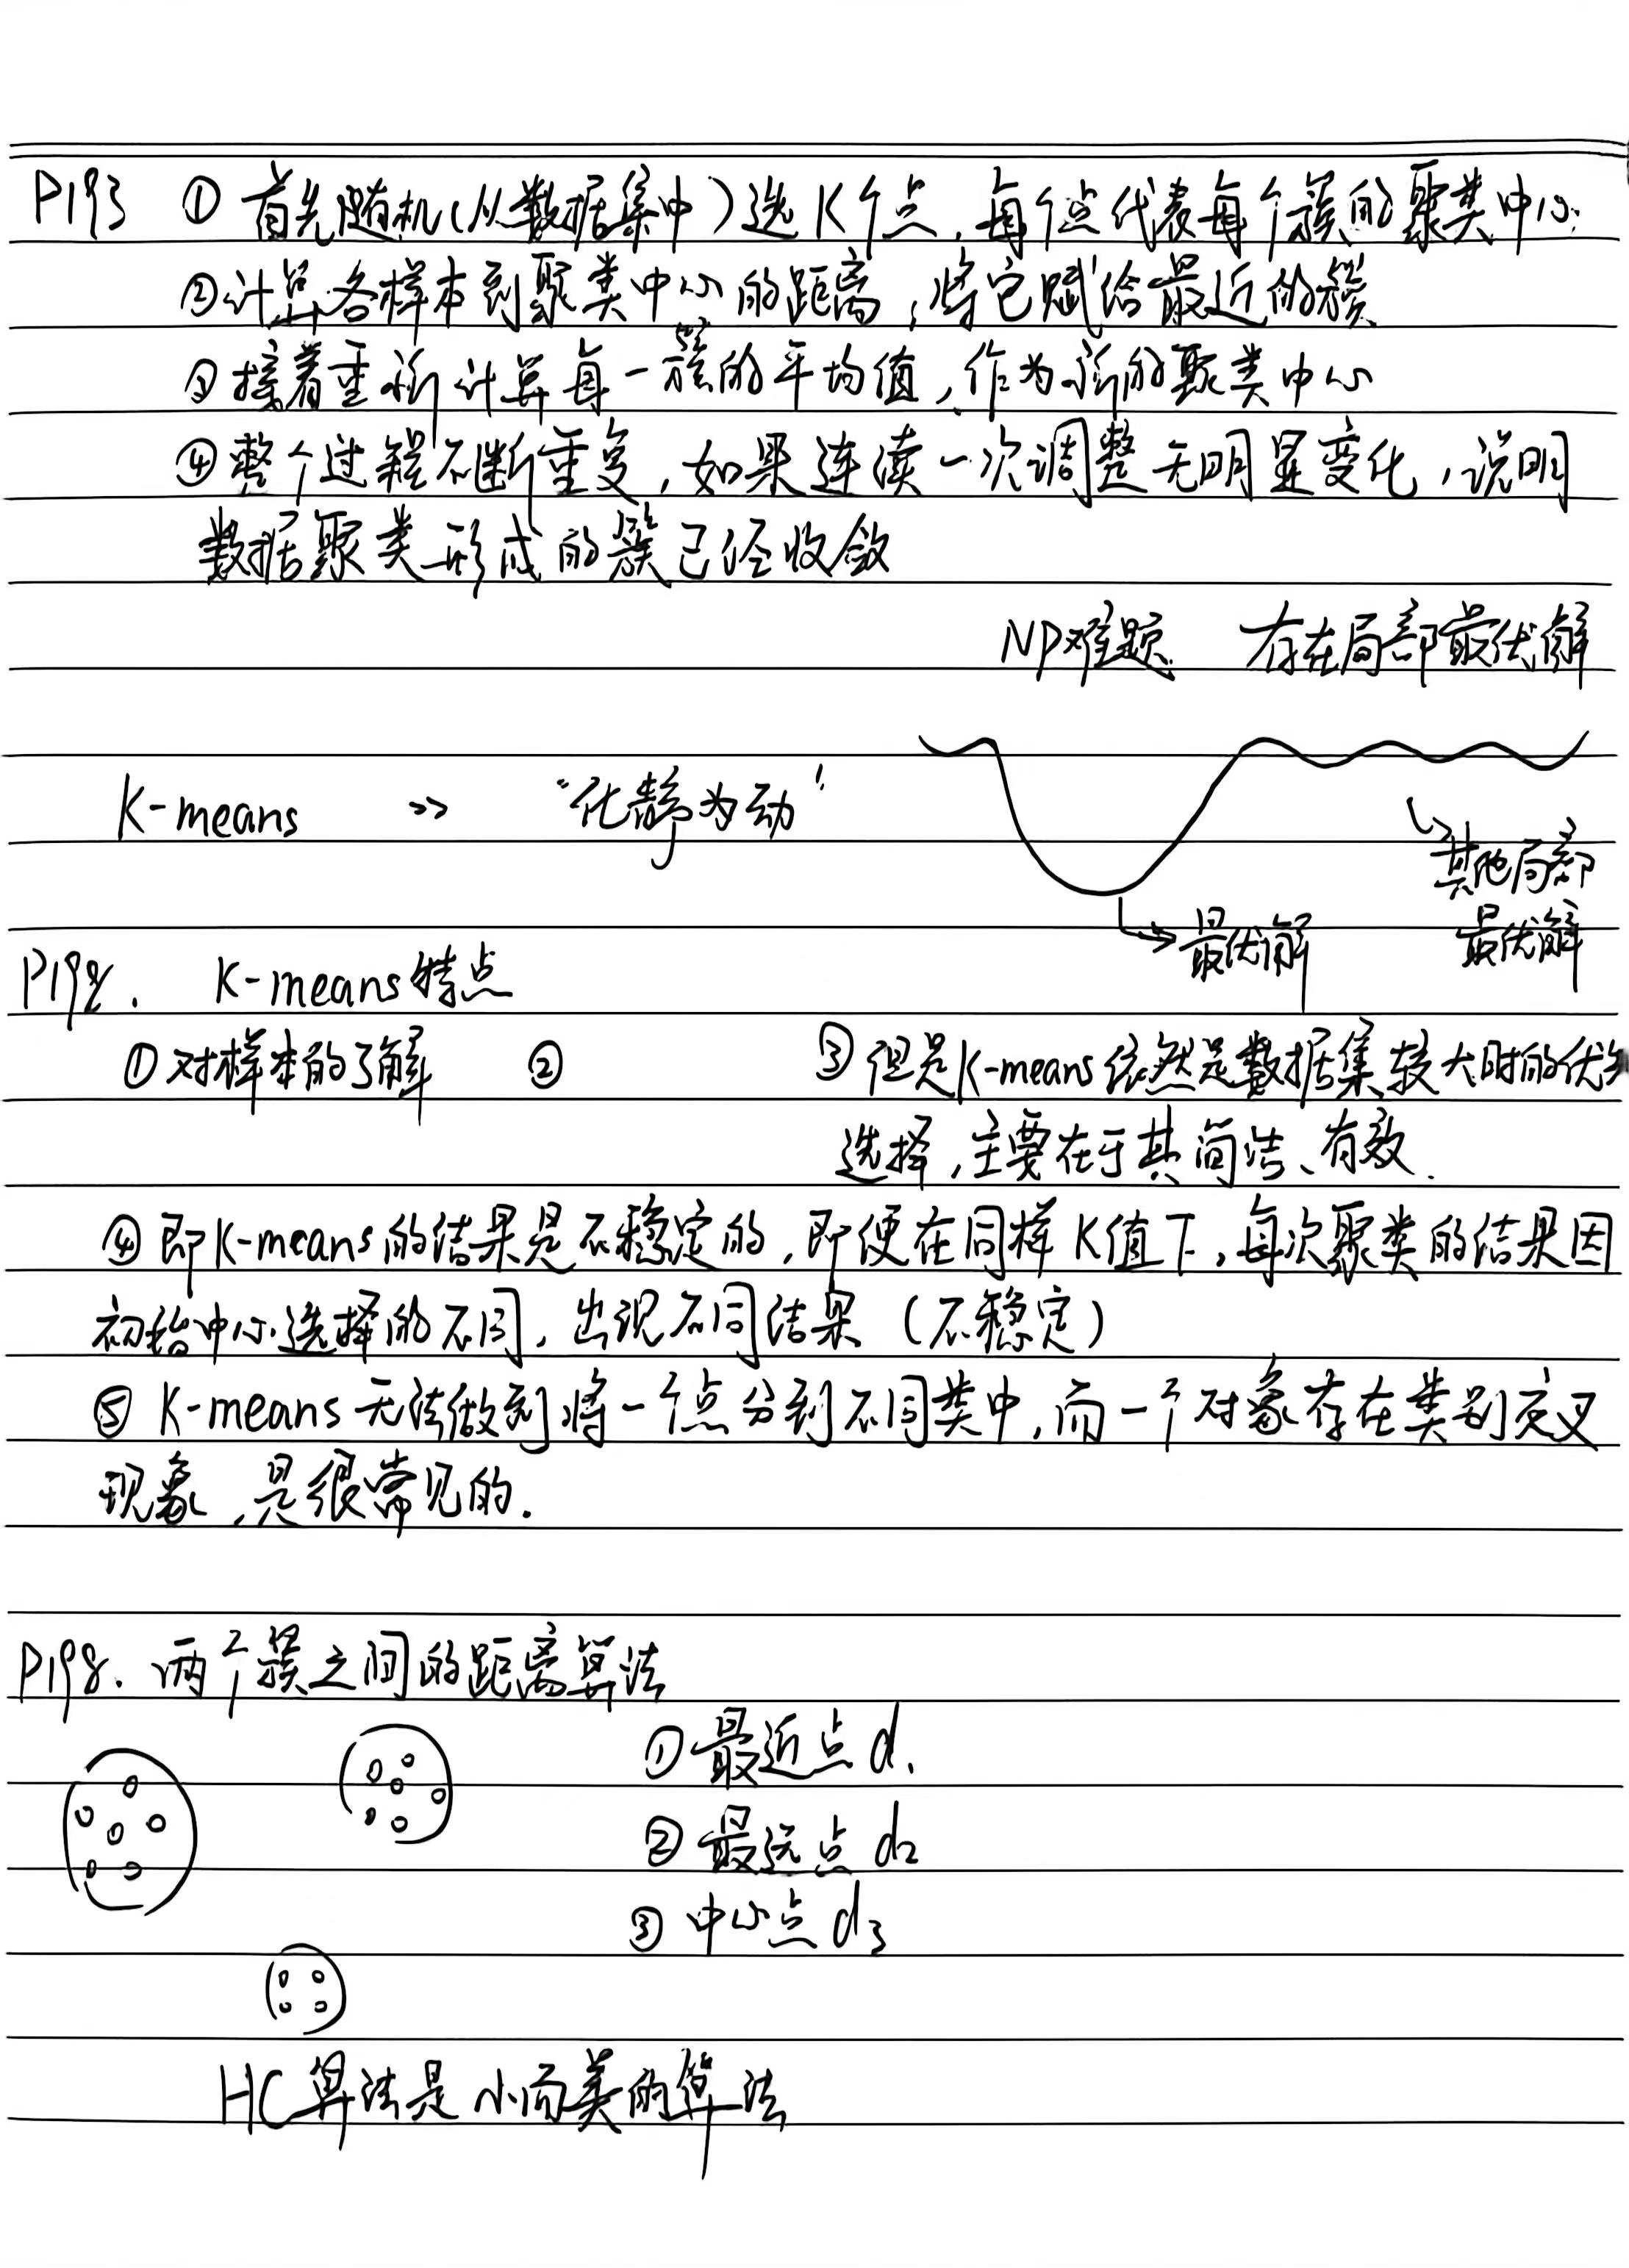 P193 ① 首先随机(从数据集中)选K个点，每个点代表每个簇的聚类中心.
②计算各样本到聚类中心的距离，将它赋给最近的簇
③接着重新计算每一簇的平均值，作为新的聚类中心
④整个过程不断重复，如果连续一次调整无明显变化，说明
数据聚类形成的簇已经收敛
NP难题 存在局部最优解
K-means >> "化静为动"
其他局部
最优解
最优解
K-means特点
①对样本的了解 ② ③但是K-means依然是数据集较大时的优先
选择，主要在于其简洁、有效.
④即K-means的结果是不稳定的，即便在同样K值下，每次聚类的结果因
初始中心选择的不同，出现不同结果（不稳定）
⑤ K-means无法做到将一个点分到不同类中，而一个对象存在类别交叉
现象，是很常见的.
P198. 两个簇之间的距离算法
①最近点d1
②最远点d2
③中心点d3
HC算法是小而美的算法